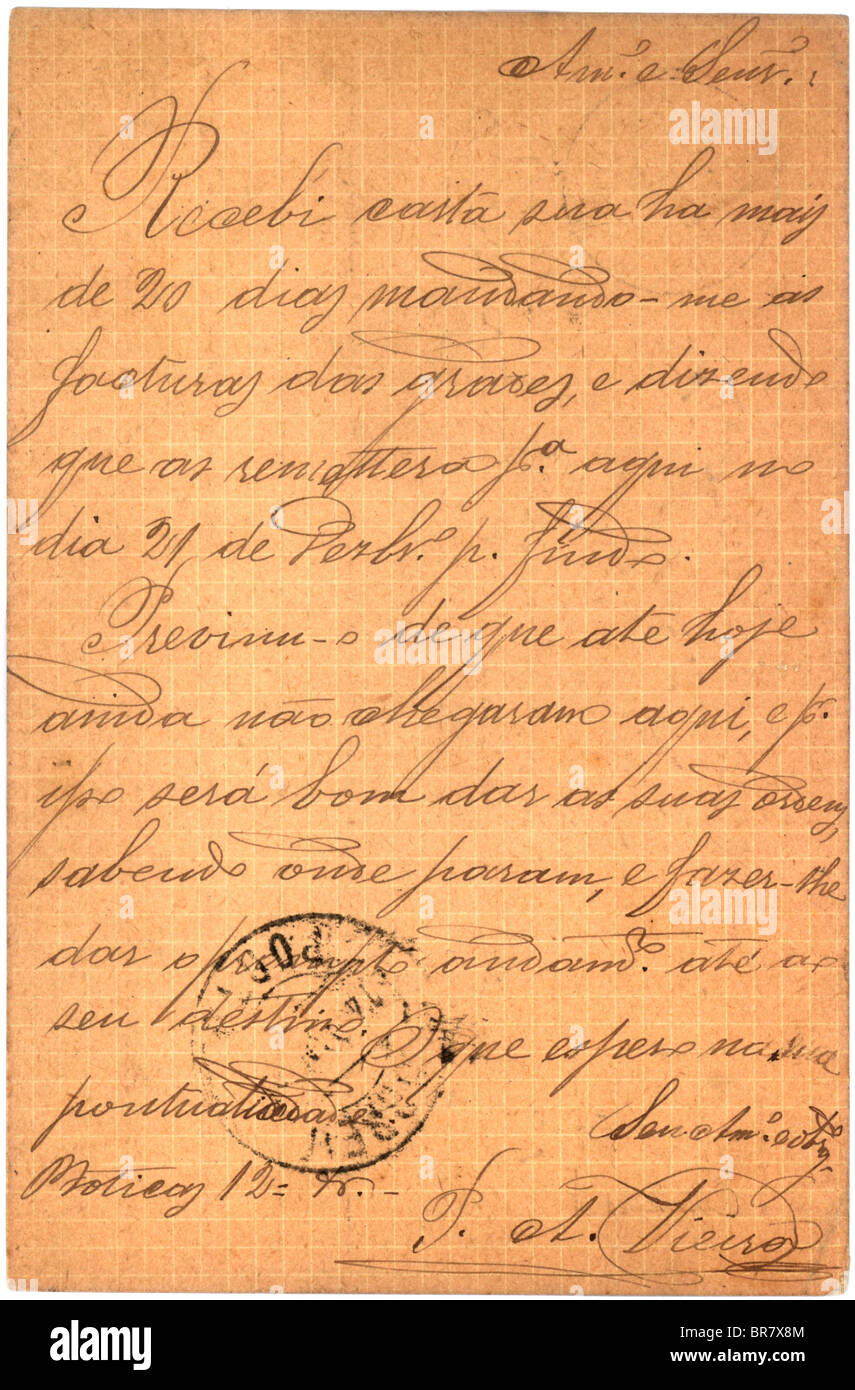 Am.º e Senr.:
Recebi carta sua ha mais
de 20 dias mandando-me as
facturas das grades, e dizendo
que as remettera p.ª aqui no
dia 21 de Dezbr.º p. findo.
Previnu-o de que até hoje
ainda não chegaram aqui, e p.
isso será bom dar as suas ordens,
sabendo onde param, e fazer-lhe
dar o prompto andam.to até ao
seu destino. O que espero na sua
pontualidade
Seu Am.º
Boticas 12=
A. Vieira
POST
alamy
Image ID: BR7X8M
www.alamy.com